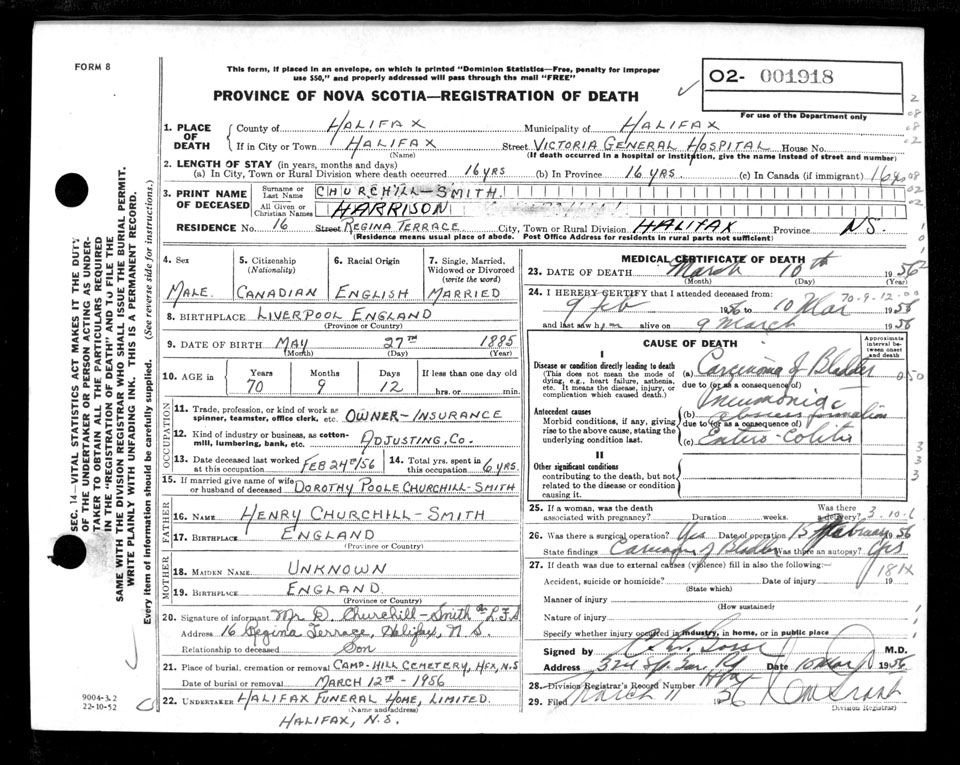 FORM 8
This form, if placed in an envelope, on which is printed "Dominion Statistics—Free, penalty for improper
use $50," and properly addressed will pass through the mail "FREE"
02- 001918
For use of the Department only
PROVINCE OF NOVA SCOTIA—REGISTRATION OF DEATH
1. PLACE OF DEATH
County of HALIFAX Municipality of HALIFAX
If in City or Town HALIFAX Street VICTORIA GENERAL HOSPITAL House No.
(Name) (If death occurred in a hospital or institution, give the name instead of street and number)
2. LENGTH OF STAY (in years, months and days)
(a) In City, Town or Rural Division where death occurred 16 YRS (b) In Province 16 YRS. (c) In Canada (if immigrant) 16 yrs
3. PRINT NAME OF DECEASED
Surname or Last Name CHURCHILL-SMITH.
All Given or Christian Names HARRISON
RESIDENCE No. 16 Street REGINA TERRACE City, Town or Rural Division HALIFAX Province N.S.
(Residence means usual place of abode. Post Office Address for residents in rural parts not sufficient)
4. Sex
MALE.
5. Citizenship (Nationality)
CANADIAN
6. Racial Origin
ENGLISH
7. Single, Married, Widowed or Divorced (write the word)
MARRIED
8. BIRTHPLACE LIVERPOOL ENGLAND
(Province or Country)
9. DATE OF BIRTH MAY 27TH 1885
(Month) (Day) (Year)
10. AGE in Years Months Days If less than one day old
70 9 12 hrs. or min.
OCCUPATION
11. Trade, profession, or kind of work as spinner, teamster, office clerk, etc. OWNER-INSURANCE
12. Kind of industry or business, as cotton-mill, lumbering, bank, etc. ADJUSTING, CO.
13. Date deceased last worked at this occupation FEB 24TH/56
14. Total yrs. spent in this occupation 6 YRS.
15. If married give name of wife or husband of deceased DOROTHY POOLE CHURCHILL-SMITH
FATHER
16. NAME HENRY CHURCHILL-SMITH
17. BIRTHPLACE ENGLAND
(Province or Country)
MOTHER
18. MAIDEN NAME UNKNOWN
19. BIRTHPLACE ENGLAND.
(Province or Country)
20. Signature of informant Mr. D. Churchill-Smith
Address 16 Regina Terrace, Halifax, N.S.
Relationship to deceased Son
21. Place of burial, cremation or removal CAMP-HILL CEMETERY, HFX, N.S
Date of burial or removal MARCH 12TH - 1956
22. UNDERTAKER HALIFAX FUNERAL HOME, LIMITED.
(Name and address)
HALIFAX, N.S.
MEDICAL CERTIFICATE OF DEATH
23. DATE OF DEATH March 10th 1956
(Month) (Day) (Year)
70-9-12-00
24. I HEREBY CERTIFY that I attended deceased from:
9 Feb 1956 to 10 Mar 1956
and last saw him alive on 9 March 1956
CAUSE OF DEATH
Approximate interval between onset and death
I
Disease or condition directly leading to death
(This does not mean the mode of dying, e.g., heart failure, asthenia, etc. It means the disease, injury, or complication which caused death.)
(a) Carcinoma of Bladder
due to (or as a consequence of)
Pneumonia
Antecedent causes
Morbid conditions, if any, giving rise to the above cause, stating the underlying condition last.
(b) abscess formation
due to (or as a consequence of)
(c) Entero-Colitis
II
Other significant conditions
contributing to the death, but not related to the disease or condition causing it.
25. If a woman, was the death associated with pregnancy? Duration weeks. Was there a delivery?
3-10.6
26. Was there a surgical operation? Yes Date of operation 15 February 1956
State findings Carcinoma of Bladder Was there an autopsy? Yes
27. If death was due to external causes (violence) fill in also the following:—
181X
Accident, suicide or homicide? Date of injury 19
(State which)
Manner of injury
(How sustained)
Nature of injury
Specify whether injury occurred in industry, in home, or in public place
Signed by M.D.
Address Date 10 Mar 1956
Hfx
28. Division Registrar's Record Number
29. Filed March 1956
Division Registrar)
SEC. 14—VITAL STATISTICS ACT MAKES IT THE DUTY
OF THE UNDERTAKER OR PERSON ACTING AS UNDER-
TAKER TO OBTAIN ALL THE PARTICULARS REQUIRED
IN THE "REGISTRATION OF DEATH" AND TO FILE THE
SAME WITH THE DIVISION REGISTRAR WHO SHALL ISSUE THE BURIAL PERMIT.
WRITE PLAINLY WITH UNFADING INK. THIS IS A PERMANENT RECORD.
Every item of information should be carefully supplied. (See reverse side for instructions.)
9004-3.2
22-10-52